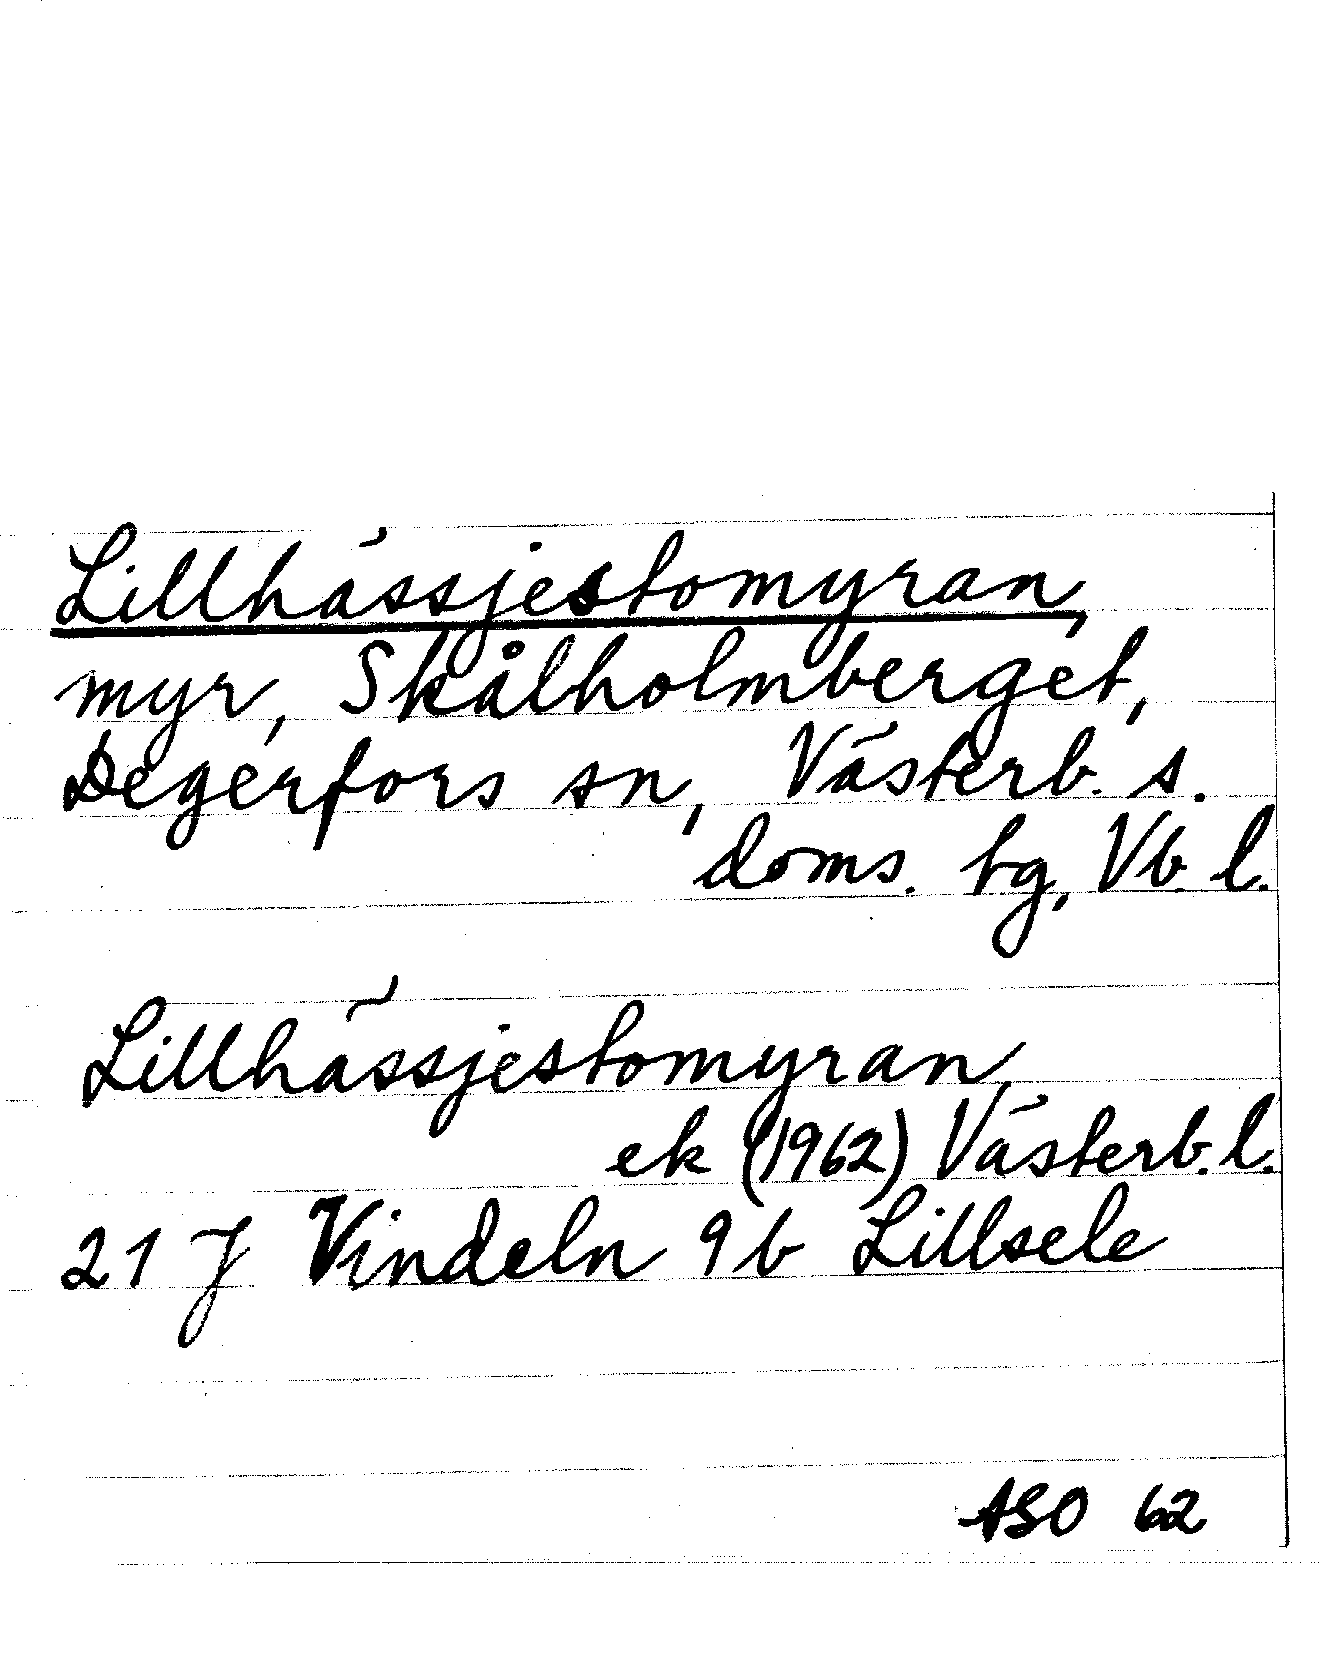 Lillhässjestomyran,
myr, Skålholmberget,
Degerfors sn, Västerb. s.
doms. tg, Vb. l.
Lillhässjestomyran,
ek (1962) Västerb. l.
21 J Vindeln 9b Lillsele
ASO 62